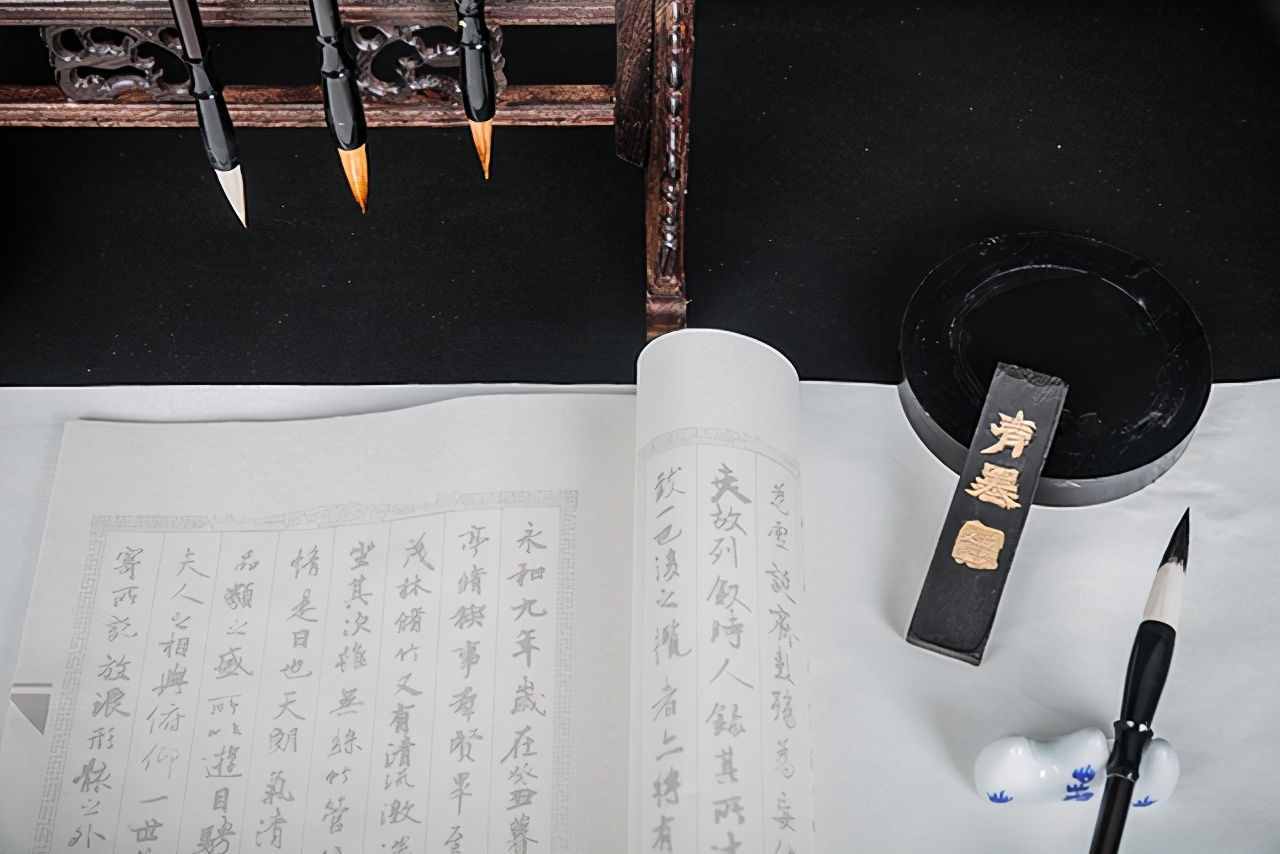 為虛誕齊彭殤為妄作
夫故列敘時人錄其所述
致一也後之攬者亦將有
永和九年歲在癸丑暮
亭脩稧事羣賢畢至
茂林脩竹又有清流激湍
坐其次雖無絲竹管
情是日也天朗氣清
品類之盛所以遊目騁
夫人之相與俯仰一世
寄所託放浪形骸之外
青墨